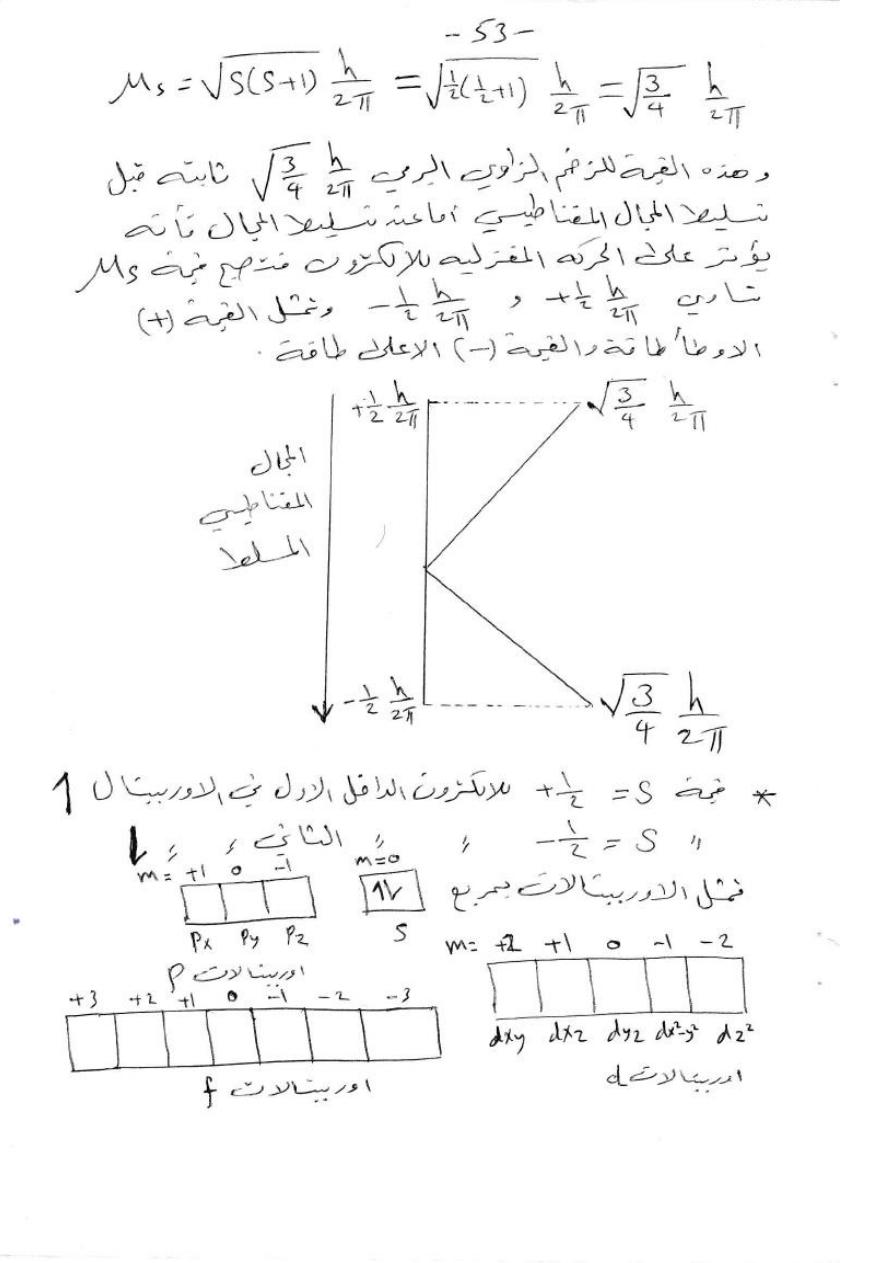 - 53 -
Ms = √S(S+1) h/2π = √½(½+1) h/2π = √3/4 h/2π
وهذه القيمة للزخم الزاوي البرمي √3/4 h/2π ثابته قبل
تسليط المجال المغناطيسي اما عند تسليط المجال فأنه
يؤثر على الحركه المغزليه للالكترون فتصبح قيمة Ms
تساوي +½ h/2π و -½ h/2π وتمثل القيمة (+)
الاوطأ طاقة والقيمة (-) الاعلى طاقة .
+½ h/2π √3/4 h/2π
المجال
المغناطيسي
المسلط
-½ h/2π √3/4 h/2π
* قيمة S = +½ للالكترون الداخل الاول في الاوربيتال 1
" S = -½ " " الثاني " "
نمثل الاوربيتالات بمربع
m=0
1L
S
m= +1 0 -1
Px Py Pz
اوربيتالات P
m= +2 +1 0 -1 -2
dxy dxz dyz dx²-y² dz²
اوربيتالات d
+3 +2 +1 0 -1 -2 -3
اوربيتالات f